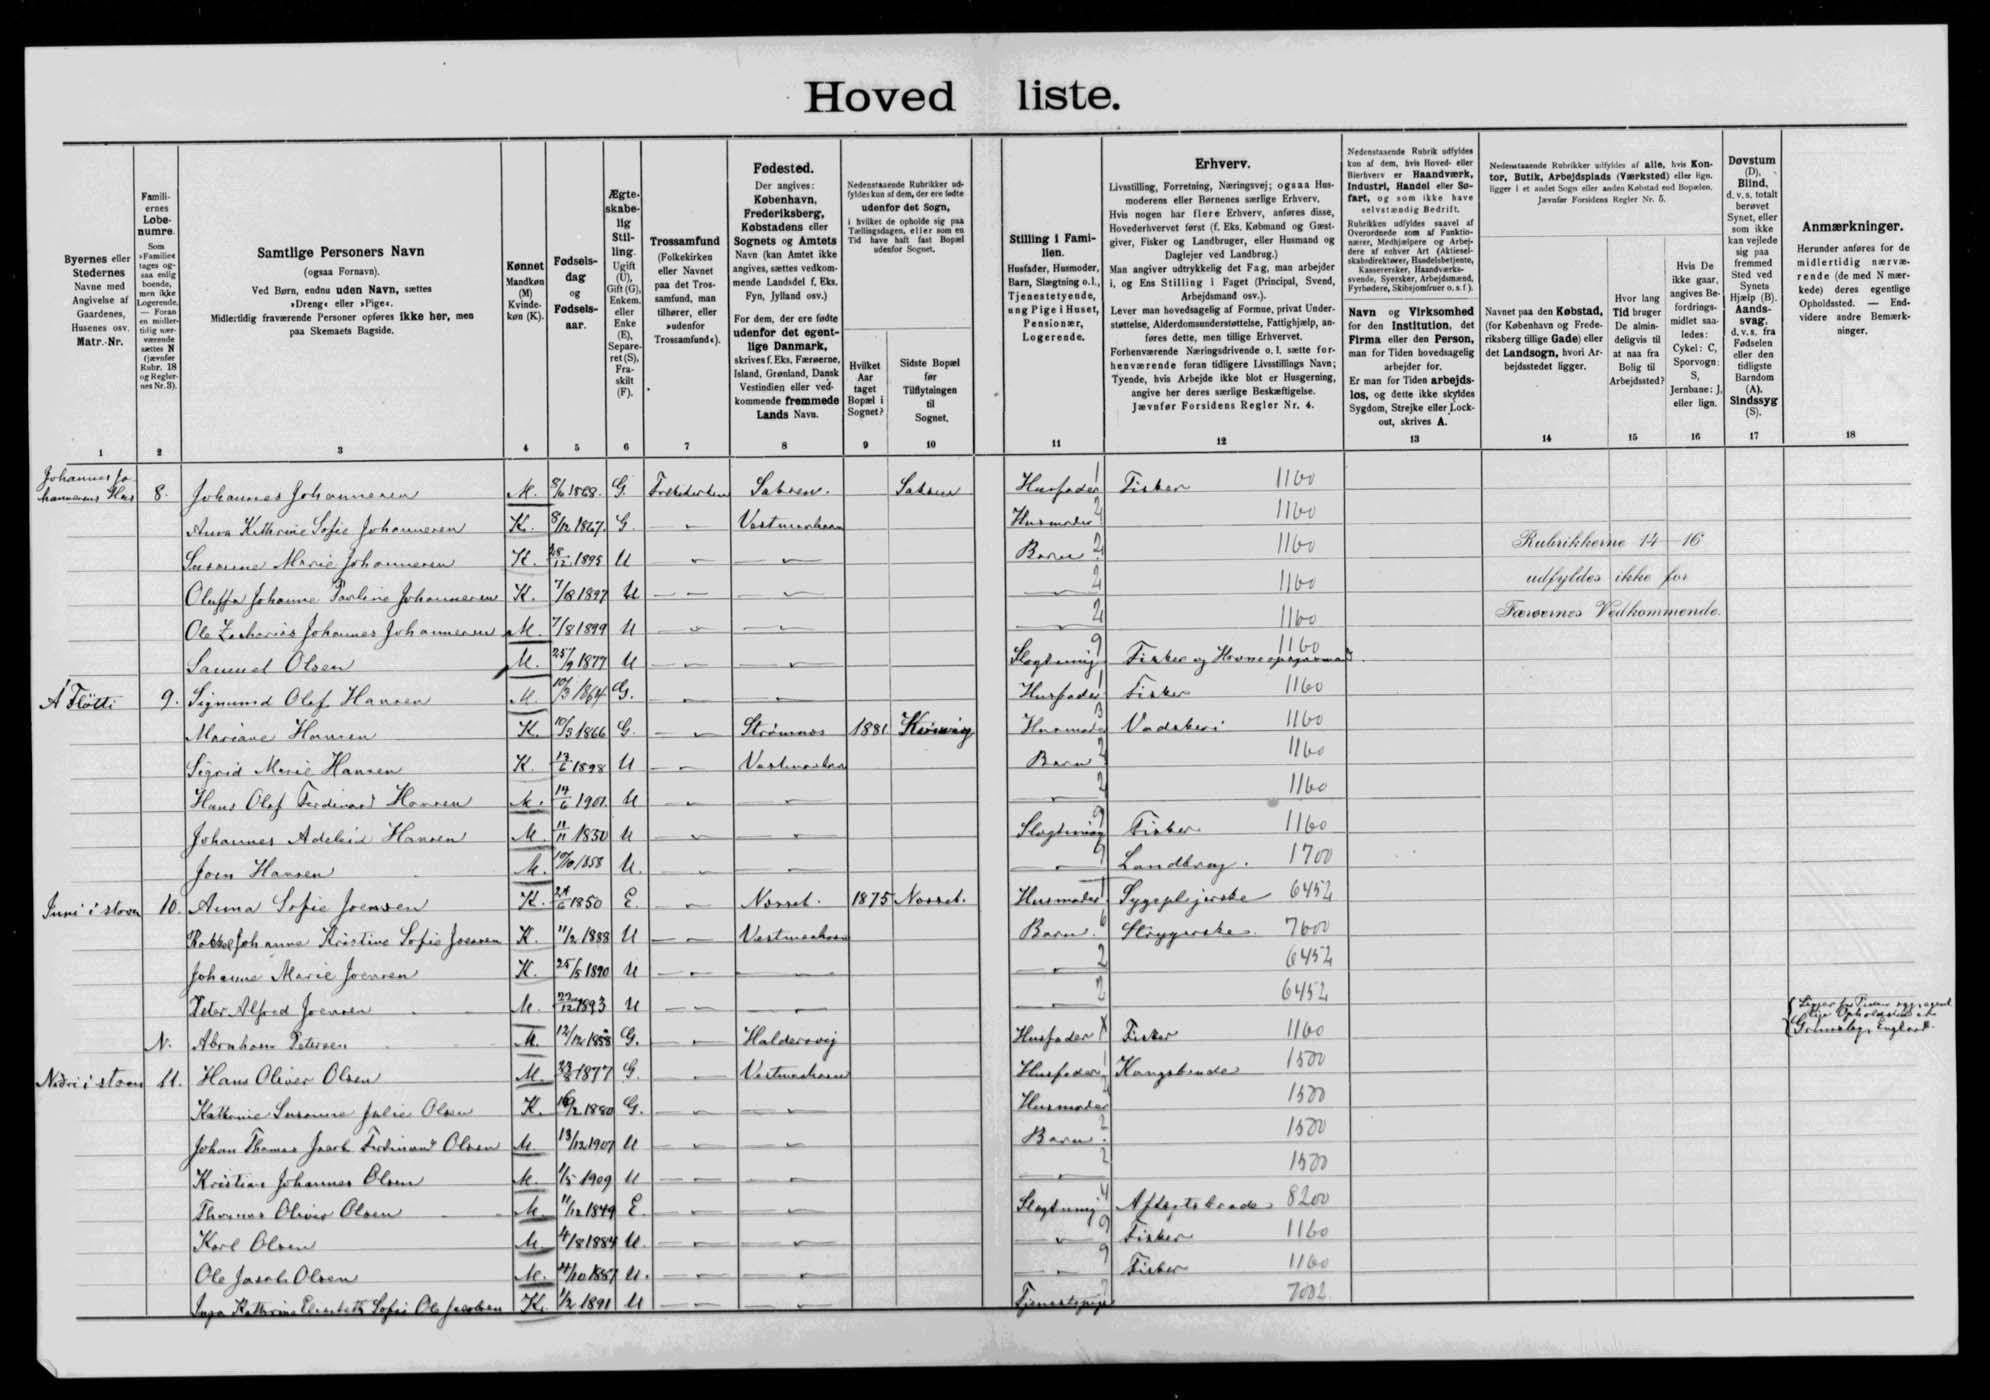 Hoved liste.
Byernes eller
Stedernes
Navne med
Angivelse af
Gaardenes,
Husenes osv.
Matr.-Nr.
Famili-
ernes
Løbe-
numre.
Som
»Familie«
tages og-
saa enlig
boende,
men ikke
Logerende.
— Foran
en midler-
tidig nær-
værende
sættes N
(jævnfør
Rubr. 18
og Regler-
nes Nr. 3).
Samtlige Personers Navn
(ogsaa Fornavn).
Ved Børn, endnu uden Navn, sættes
»Dreng« eller »Pige«.
Midlertidig fraværende Personer opføres ikke her, men
paa Skemaets Bagside.
Kønnet
Mandkøn
(M)
Kvinde-
køn (K).
Fødsels-
dag
og
Fødsels-
aar.
Ægte-
skabe-
lig
Stil-
ling.
Ugift
(U),
Gift (G),
Enkem.
eller
Enke
(E),
Separe-
ret (S),
Fra-
skilt
(F).
Trossamfund
(Folkekirken
eller Navnet
paa det Tros-
samfund, man
tilhører, eller
»udenfor
Trossamfund«).
Fødested.
Der angives:
København,
Frederiksberg,
Købstadens eller
Sognets og Amtets
Navn (kan Amtet ikke
angives, sættes vedkom-
mende Landsdel f. Eks.
Fyn, Jylland osv.)
For dem, der ere fødte
udenfor det egent-
lige Danmark,
skrives f. Eks. Færøerne,
Island, Grønland, Dansk
Vestindien eller ved-
kommende fremmede
Lands Navn.
Nedenstaaende Rubrikker ud-
fyldes kun af dem, der ere fødte
udenfor det Sogn,
i hvilket de opholde sig paa
Tællingsdagen, eller som en
Tid have haft fast Bopæl
udenfor Sognet.
Hvilket
Aar
taget
Bopæl i
Sognet?
Sidste Bopæl
før
Tilflytningen
til
Sognet.
Stilling i Fami-
lien.
Husfader, Husmoder,
Barn, Slægtning o.l.,
Tjenestetyende,
ung Pige i Huset,
Pensionær,
Logerende.
Erhverv.
Livsstilling, Forretning, Næringsvej; ogsaa Hus-
moderens eller Børnenes særlige Erhverv.
Hvis nogen har flere Erhverv, anføres disse,
Hovederhvervet først (f. Eks. Købmand og Gæst-
giver, Fisker og Landbruger, eller Husmand og
Daglejer ved Landbrug.)
Man angiver udtrykkelig det Fag, man arbejder
i, og Ens Stilling i Faget (Principal, Svend,
Arbejdsmand osv.).
Lever man hovedsagelig af Formue, privat Under-
støttelse, Alderdomsunderstøttelse, Fattighjælp, an-
føres dette, men tillige Erhvervet.
Forhenværende Næringsdrivende o. l. sætte for-
henværende foran tidligere Livsstillings Navn;
Tyende, hvis Arbejde ikke blot er Husgerning,
angive her deres særlige Beskæftigelse.
Jævnfør Forsidens Regler Nr. 4.
Nedenstaaende Rubrik udfyldes
kun af dem, hvis Hoved- eller
Bierhverv er Haandværk,
Industri, Handel eller Sø-
fart, og som ikke have
selvstændig Bedrift.
Rubrikken udfyldes saavel af
Overordnede som af Funktio-
nærer, Medhjælpere og Arbej-
dere af enhver Art (Aktiesel-
skabsdirektører, Handelsbetjente,
Kasserersker, Haandværks-
svende, Syersker, Arbejdsmænd,
Fyrbødere, Skibsjomfruer o. s. f.).
Navn og Virksomhed
for den Institution, det
Firma eller den Person,
man for Tiden hovedsagelig
arbejder for.
Er man for Tiden arbejds-
løs, og dette ikke skyldes
Sygdom, Strejke eller Lock-
out, skrives A.
Nedenstaaende Rubrikker udfyldes af alle, hvis Kon-
tor, Butik, Arbejdsplads (Værksted) eller lign.
ligger i et andet Sogn eller anden Købstad end Bopælen.
Jævnfør Forsidens Regler Nr. 5.
Navnet paa den Købstad,
(for København og Frede-
riksberg tillige Gade) eller
det Landsogn, hvori Ar-
bejdsstedet ligger.
Hvor lang
Tid bruger
De almin-
deligvis til
at naa fra
Bolig til
Arbejdssted?
Hvis De
ikke gaar,
angives Be-
fordrings-
midlet saa-
ledes:
Cykel: C,
Sporvogn:
S,
Jernbane: J,
eller lign.
Døvstum
(D),
Blind,
d. v. s. totalt
berøvet
Synet, eller
som ikke
kan vejlede
sig paa
fremmed
Sted ved
Synets
Hjælp (B).
Aands-
svag,
d. v. s. fra
Fødselen
eller den
tidligste
Barndom
(A).
Sindssyg
(S).
Anmærkninger.
Herunder anføres for de
midlertidig nærvæ-
rende (de med N mær-
kede) deres egentlige
Opholdssted. — End-
videre andre Bemærk-
ninger.
1 2 3 4 5 6 7 8 9 10 11 12 13 14 15 16 17 18
Johannes Jo-
hannesens Hus 8. Johannes Johannesen M. 8/6 1868. G. Folkekirken Saksen. Saksun Husfader 1 Fisker 1160
Anna Kathrine Sofie Johannesen K. 8/12 1867. G. — " — Vestmanhavn Husmoder 2 1160
Susanne Marie Johannesen K. 28/12 1895 U — " — — " — Barn 2 1160 Rubrikkerne 14—16
Oluffa Johanne Pauline Johannesen K. 7/8 1897 U — " — — " — — " — 2 1160 udfyldes ikke for
Ole Zacharias Johannes Johannesen M. 7/8 1899 U — " — — " — — " — 2 1160 Færøernes Vedkommende.
Samuel Olsen M. 25/9 1877 U — " — — " — Slægtning 9 Fisker og Havneopsynsmand 1160
Á Fløtti 9. Sigmund Olaf Hansen M. 10/3 1864 G. — " — — " — Husfader 1 Fisker 1160
Mariane Hansen K. 10/3 1866 G. — " — Strømnæs 1881 Husmoder 3 Vadskeri 1160
Sigrid Marie Hansen K. 13/6 1898 U — " — Vestmanhavn Barn 2 1160
Hans Olaf Ferdinand Hansen M. 14/6 1901. U — " — — " — — " — 2 1160
Johannes Hansen M. 11/11 1850 U — " — — " — Slægtning 9 Fisker 1160
Joen Hansen M. 1858 U. — " — — " — — " — 9 Landbrug. 1700
Inni í stovu 10. Anna Sofie Joensen K. 29/6 1850 E. — " — Norset. 1875 Norset. Husmoder 1 Sygeplejerske 6452
Johanne Kristine Sofie Joensen K. 11/2 1888 U — " — Vestmanhavn Barn. 6 Strygerske. 7600
Johanne Marie Joensen K. 25/5 1890 U — " — — " — — " — 2 6452
Peter Alfred Joensen M. 22/12 1893 U — " — — " — — " — 2 6452
N. Abraham Petersen M. 12/12 1858 G. — " — Haldersvig Husfader Fisker 1160 Grimsby, England.
Niðri í stovu 11. Hans Oliver Olsen M. 23/8 1877 G. — " — Vestmanhavn Husfader 1 Kongsbonde 1500
Kathrine Susanne Julie Olsen K. 16/2 1880 G. — " — — " — Husmoder 2 1500
Johan Thomas Jacob Ferdinand Olsen M. 13/12 1907 U — " — — " — Barn. 2 1500
Kristian Johannes Olsen M. 1/5 1909 U — " — — " — — " — 2 1500
Thomas Oliver Olsen M. 11/12 1849 E. — " — — " — Slægtning 4 Aftægtsbonde 8200
Karl Olsen M. 4/8 1884 U. — " — — " — — " — 9 Fisker 1160
Ole Jacob Olsen M. 1887 U. — " — — " — — " — 9 Fisker 1160
Inga Kathrine Elisabeth Sofie Ole Jacobsen K. 1/2 1891 U — " — — " — Tjenestepige 7002.